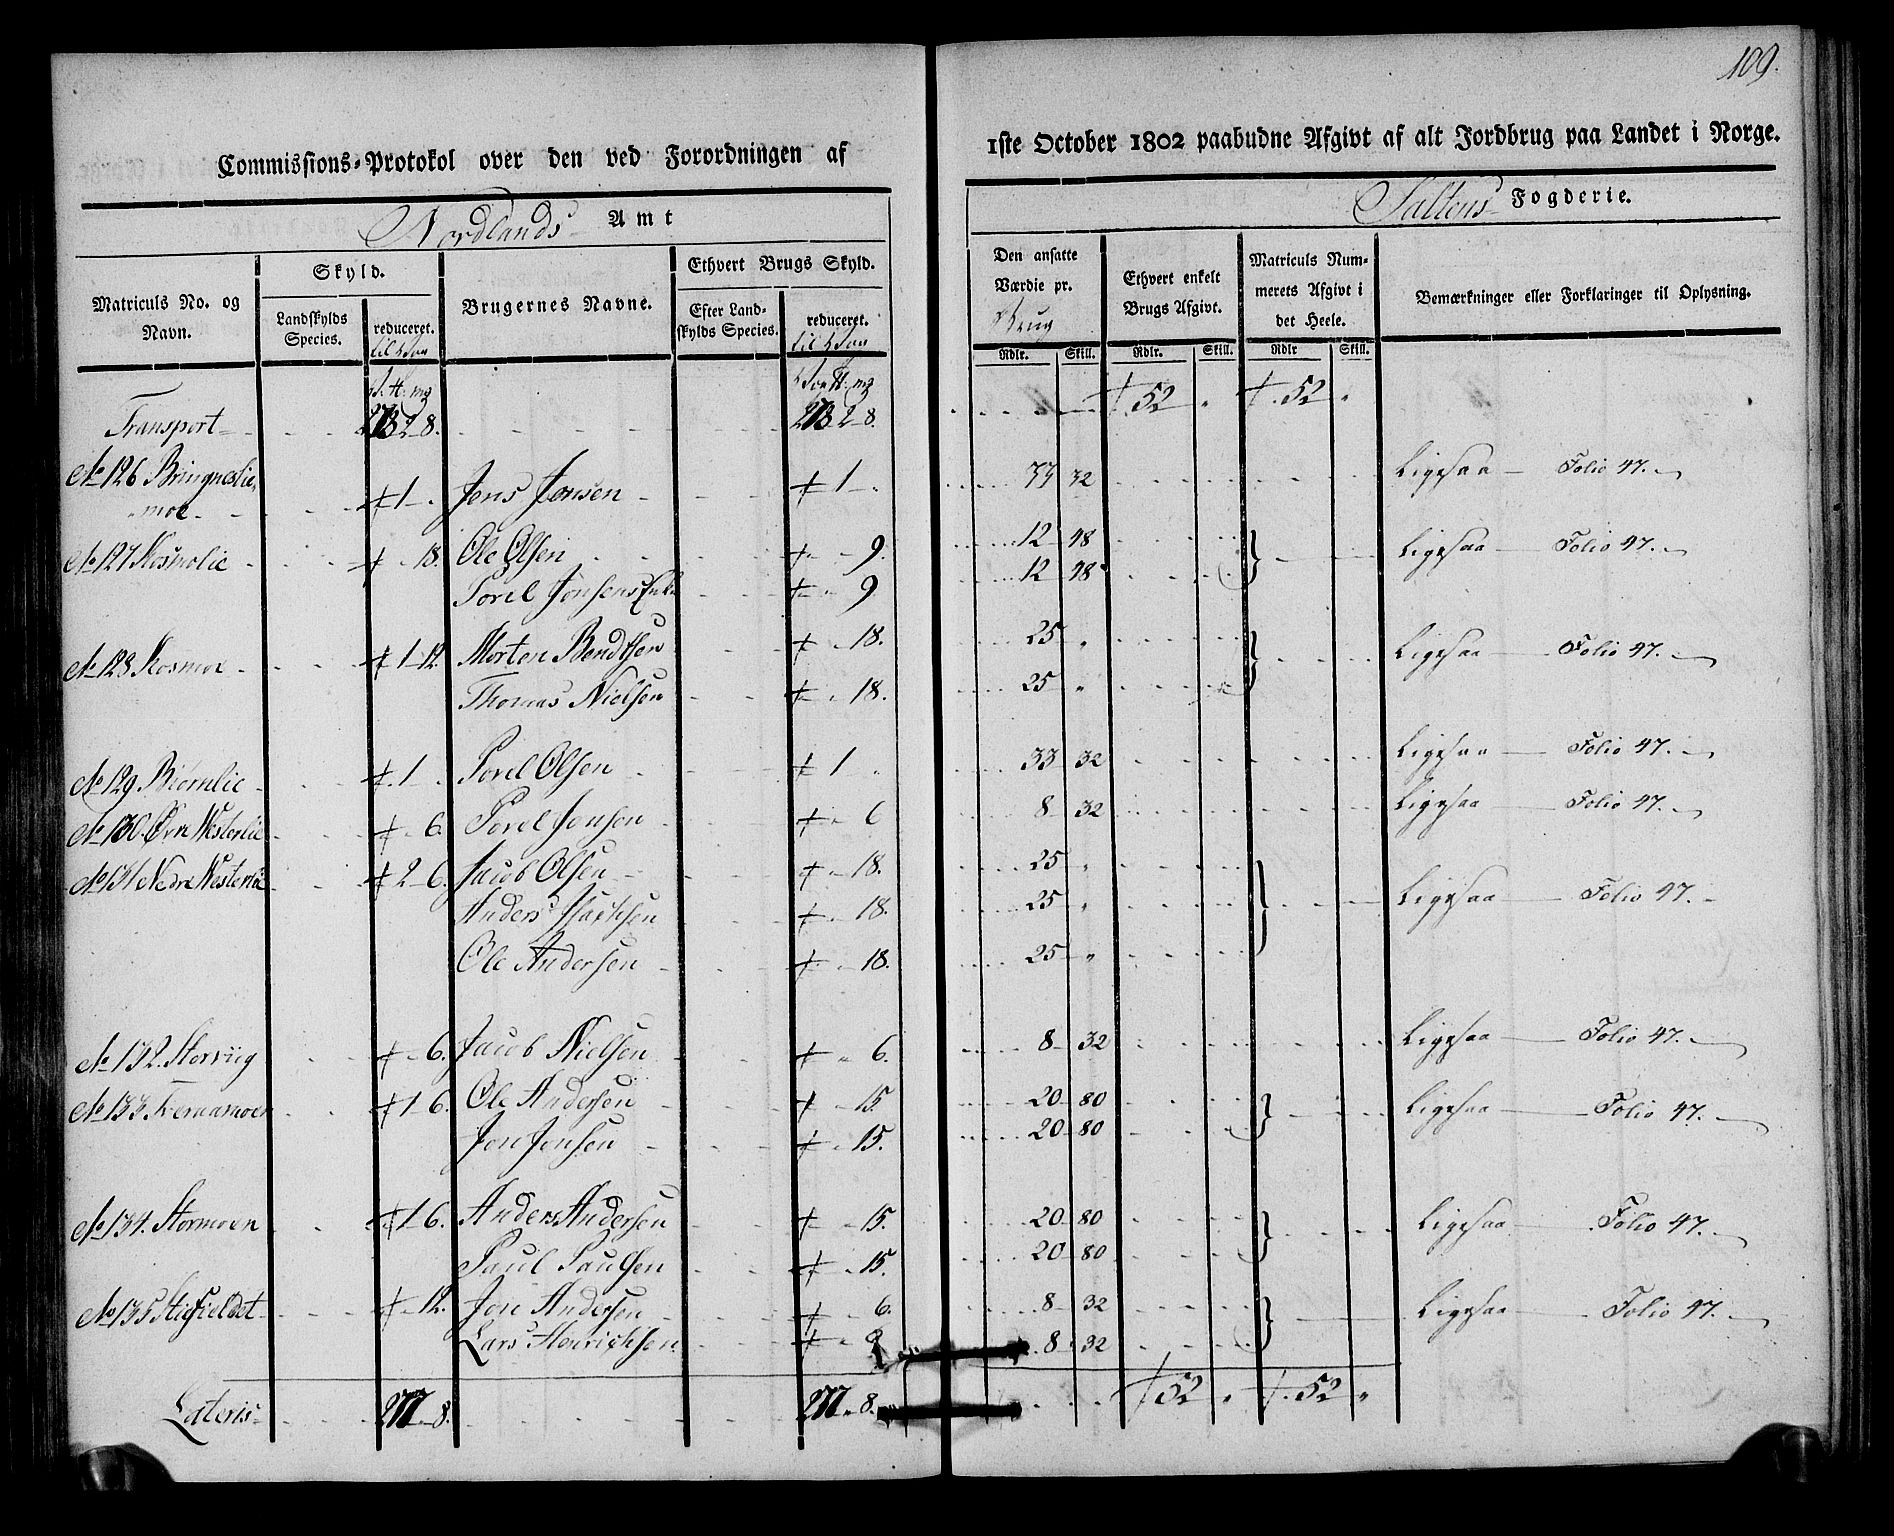 109.
Commissions-Protokol over den ved Forordningen af
1ste October 1802 paabudne Afgivt af alt Jordbrug paa Landet i Norge.
Nordlands Amt
Saltens Fogderie.
Matriculs No. og Navn.
Skyld.
Landskylds Species.
reduceret.
Brugernes Navne.
Ethvert Brugs Skyld.
Efter Landskylds Species.
reduceret.
Den ansatte Værdie pr. Brug
Ethvert enkelt Brugs Afgivt.
Matriculs Nummerets Afgivt i det Heele.
Bemærkninger eller Forklaringer til Oplysning.
Rdlr. Skill. Rdlr. Skill. Rdlr Skill.
Transport 2-8. 2-8. 52 " 52 "
No 126 Bringneslie moe 1 - Jens Jonsen 1 - 33 32 Ligesaa Folio 47.
No 127 Kosmolie - 18. Ole Olsen - 9. 12 48 Ligesaa Folio 47.
Povel Jonsens Enke - 9 12 48
No 128 Kosmoe 1-12. Morten Bendtsen - 18. 25 " Ligesaa Folio 47.
Thomas Nielsen - 18. 25 "
No 129 Biørnlie 1 Povel Olsen 1 33 32 Ligesaa Folio 47.
No 130. Øvre Westerlie - 6. Povel Jonsen - 6 8 32 Ligesaa Folio 47.
No 131 Nedre Westerlie 2-6. Jacob Olsen - 18. 25 " Ligesaa Folio 47.
Anders Isachsen - 18. 25 "
Ole Andersen - 18. 25 "
No 132. Storviig - 6. Jacob Nielsen - 6. 8 32 Ligesaa Folio 47.
No 133 1 6. Ole Andersen - 15. 20 80 Ligesaa Folio 47.
Jon Jensen - 15. 20 80
No 134. Stormoen 1 6. Anders Andersen - 15. 20 80 Ligesaa Folio 47.
Paul Paulsen - 15. 20 80
No 135 Stigfieldet - 12. Jon Andersen - 6. 8 32 Ligesaa Folio 47.
Lars Henrichsen 8 32
Lateris 277 - 8. 277 - 8. 52 " 52 "